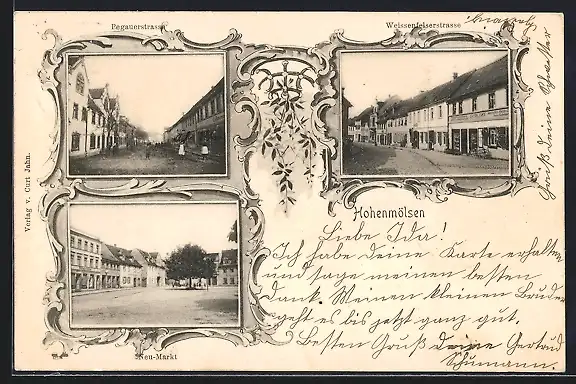 Pegauerstrasse
Weissenfelserstrasse
Verlag v. Curt Jahn.
Neu-Markt
Hohenmölsen
Liebe Ida!
Ich habe deine Karte erhalten
und sage meinen besten
Dank. Meinen kleinen Bruder
geht es bis jetzt ganz gut.
Besten Gruß deine Gertrud
Schumann.
Gruß deine Schwester